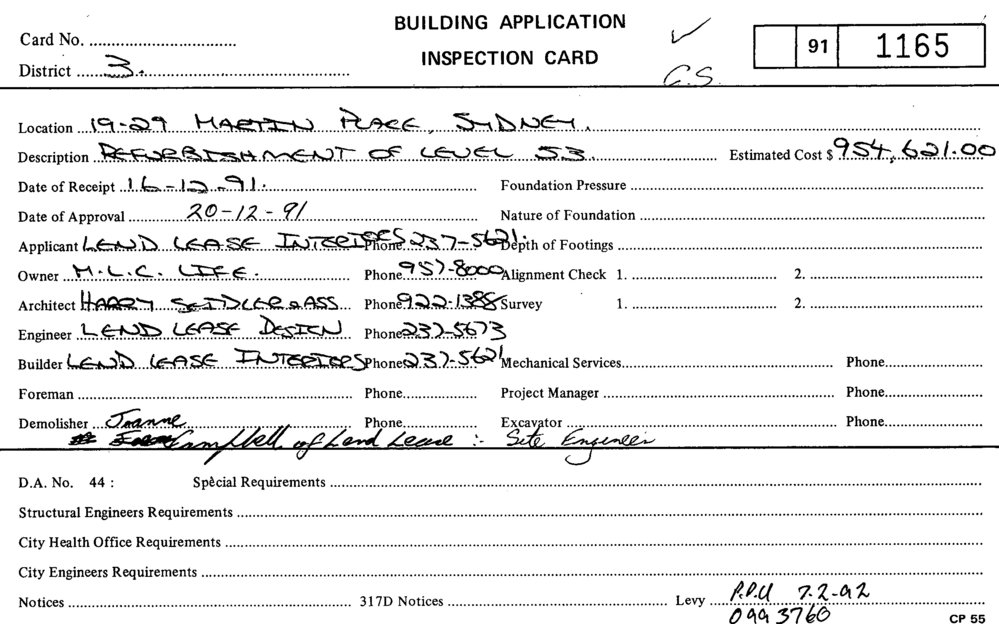 BUILDING APPLICATION
INSPECTION CARD
Card No.
91 1165
District 3.
C.S.
Location 19-29 MARTIN PLACE, SYDNEY.
Description REFURBISHMENT OF LEVEL 53. Estimated Cost $ 954,621.00
Date of Receipt 16-12-91. Foundation Pressure
Date of Approval 20-12-91 Nature of Foundation
Applicant LEND LEASE INTERIORS Phone 237-5621. Depth of Footings
Owner M.L.C. LIFE. Phone 957-8000 Alignment Check 1. 2.
Architect HARRY SEIDLER & ASS Phone 922-1388 Survey 1. 2.
Engineer LEND LEASE DESIGN Phone 237-5673
Builder LEND LEASE INTERIORS Phone 237-5621 Mechanical Services Phone
Foreman Phone Project Manager Phone
Demolisher Joanne Phone Excavator Phone
Campbell of Lend Lease :- Site Engineer
D.A. No. 44 : Special Requirements
Structural Engineers Requirements
City Health Office Requirements
City Engineers Requirements
Notices 317D Notices Levy P.P.U 7.2-92
099 3760
CP 55